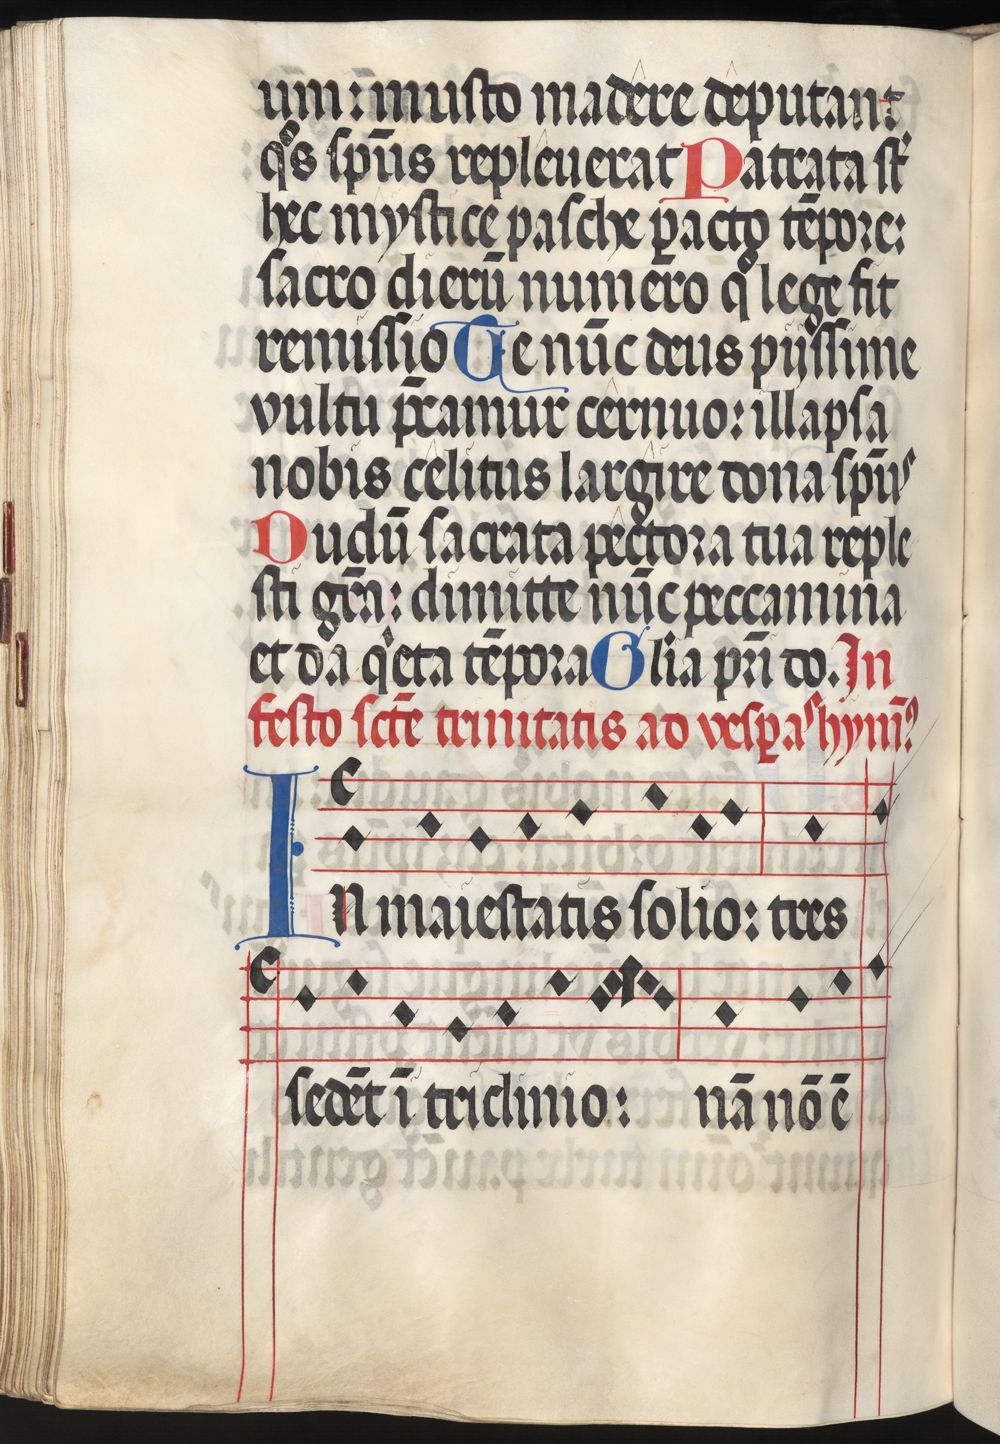 um: musto madere deputant
qͦs sp̄us repleuerat Patrata st̄
hec mystice pasche ꝑacto tēpore:
sacro dierū numero q̄ lege fit
remissio Te nūc deus pijssime
vultu p̄camur cernuo: illapsa
nobis celitus largire dona sp̄us
Dudū sacrata pectora tua reple
sti gr̄a: dimitte nūc peccamina
et da q̇eta tēpora Glīa pr̄i do. In
festo sctē trinitatis ad vesꝑas hymꝰ
In maiestatis solio: tres
sedēt ī triclinio: nā nō ē